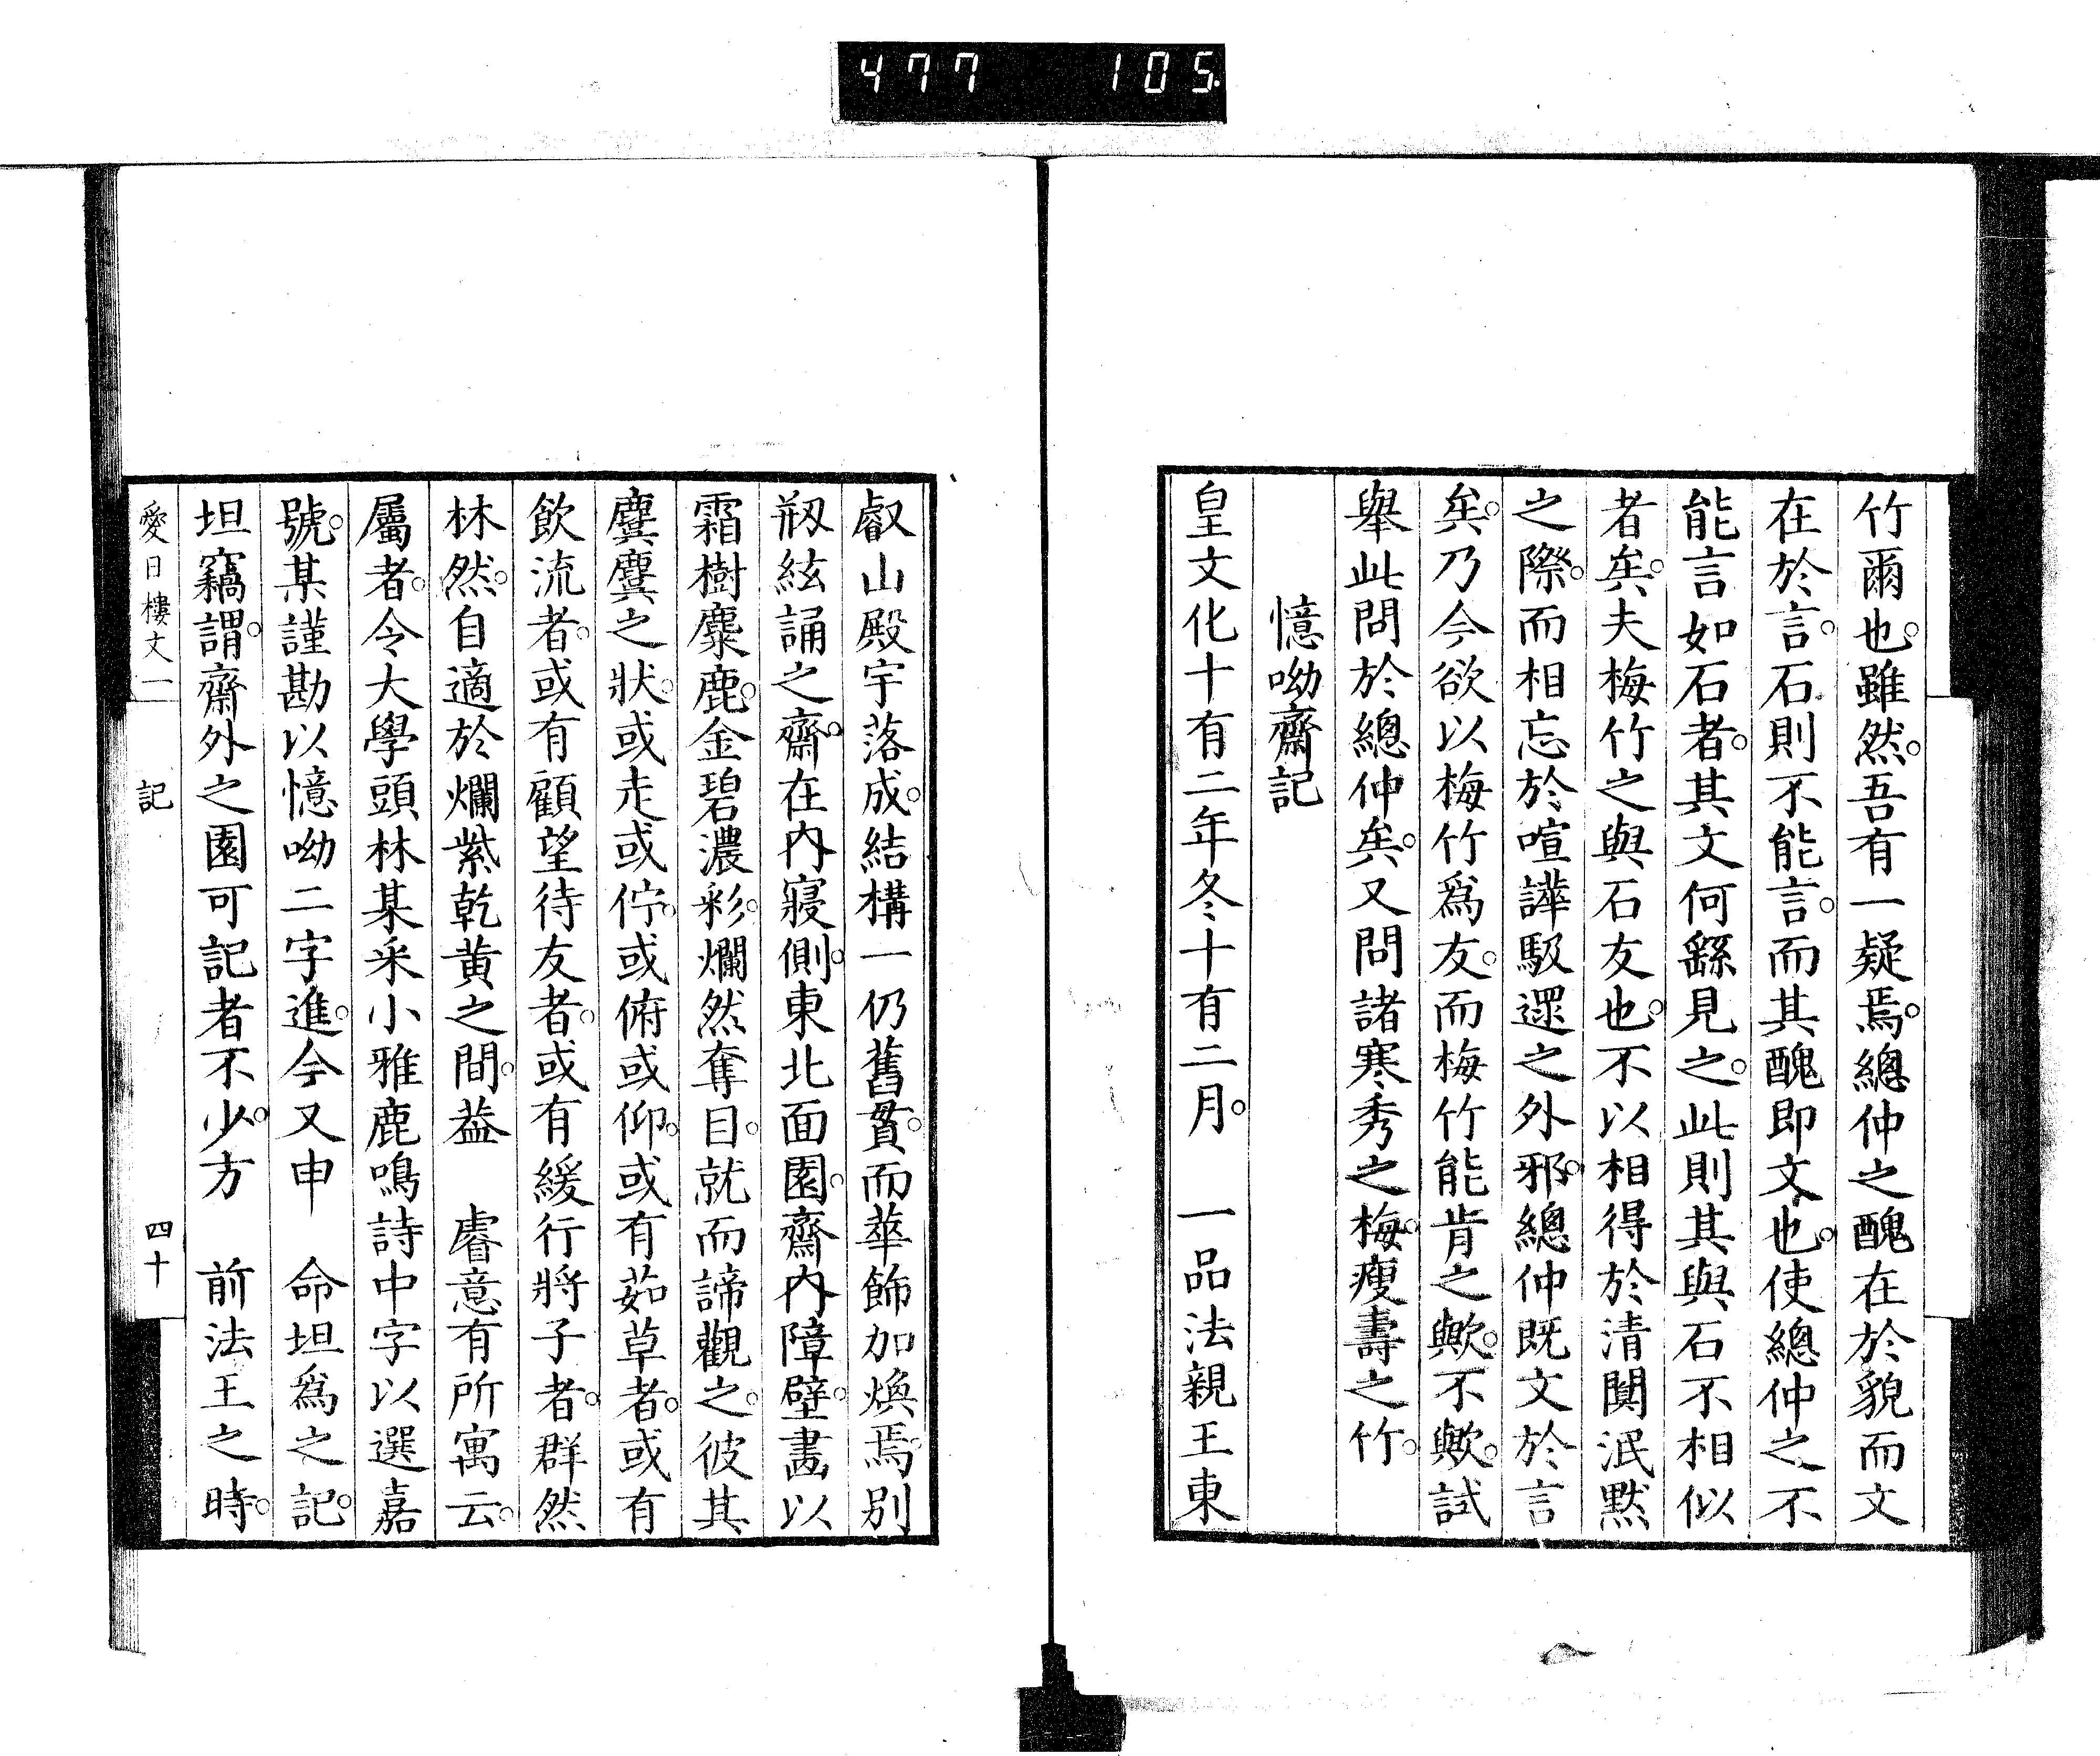 477 105.
竹爾也。雖然。吾有一疑焉。總仲之醜在於貌而文
在於言。石則不能言。而其醜即文也。使總仲之不
能言如石者。其文何繇見之。此則其與石不相似
者矣。夫梅竹之與石友也。不以相得於清闃泯默
之際。而相忘於喧譁駁遝之外邪。總仲既文於言
矣。乃今欲以梅竹爲友。而梅竹能肯之歟。不歟。試
舉此問於總仲矣。又問諸寒秀之梅。瘦壽之竹。
憶呦齋記
皇文化十有二年冬十有二月。 一品法親王東
叡山殿宇落成。結構一仍舊貫。而華飾加煥焉。別
剏絃誦之齋。在内寢側。東北面園。齋内障壁。畫以
霜樹麋鹿。金碧濃彩。爛然奪目。就而諦觀之。彼其
麌麌之狀。或走或佇。或俯或仰。或有茹草者。或有
飲流者。或有顧望待友者。或有緩行將子者。群然
林然。自適於爛紫乾黄之間。葢 睿意有所寓云。
屬者。令大學頭林某采小雅鹿鳴詩中字以選嘉
號。某謹勘以憶呦二字進。今又申 命坦爲之記。
坦竊謂。齋外之園可記者不少。方 前法王之時。
愛日樓文一 記 四十